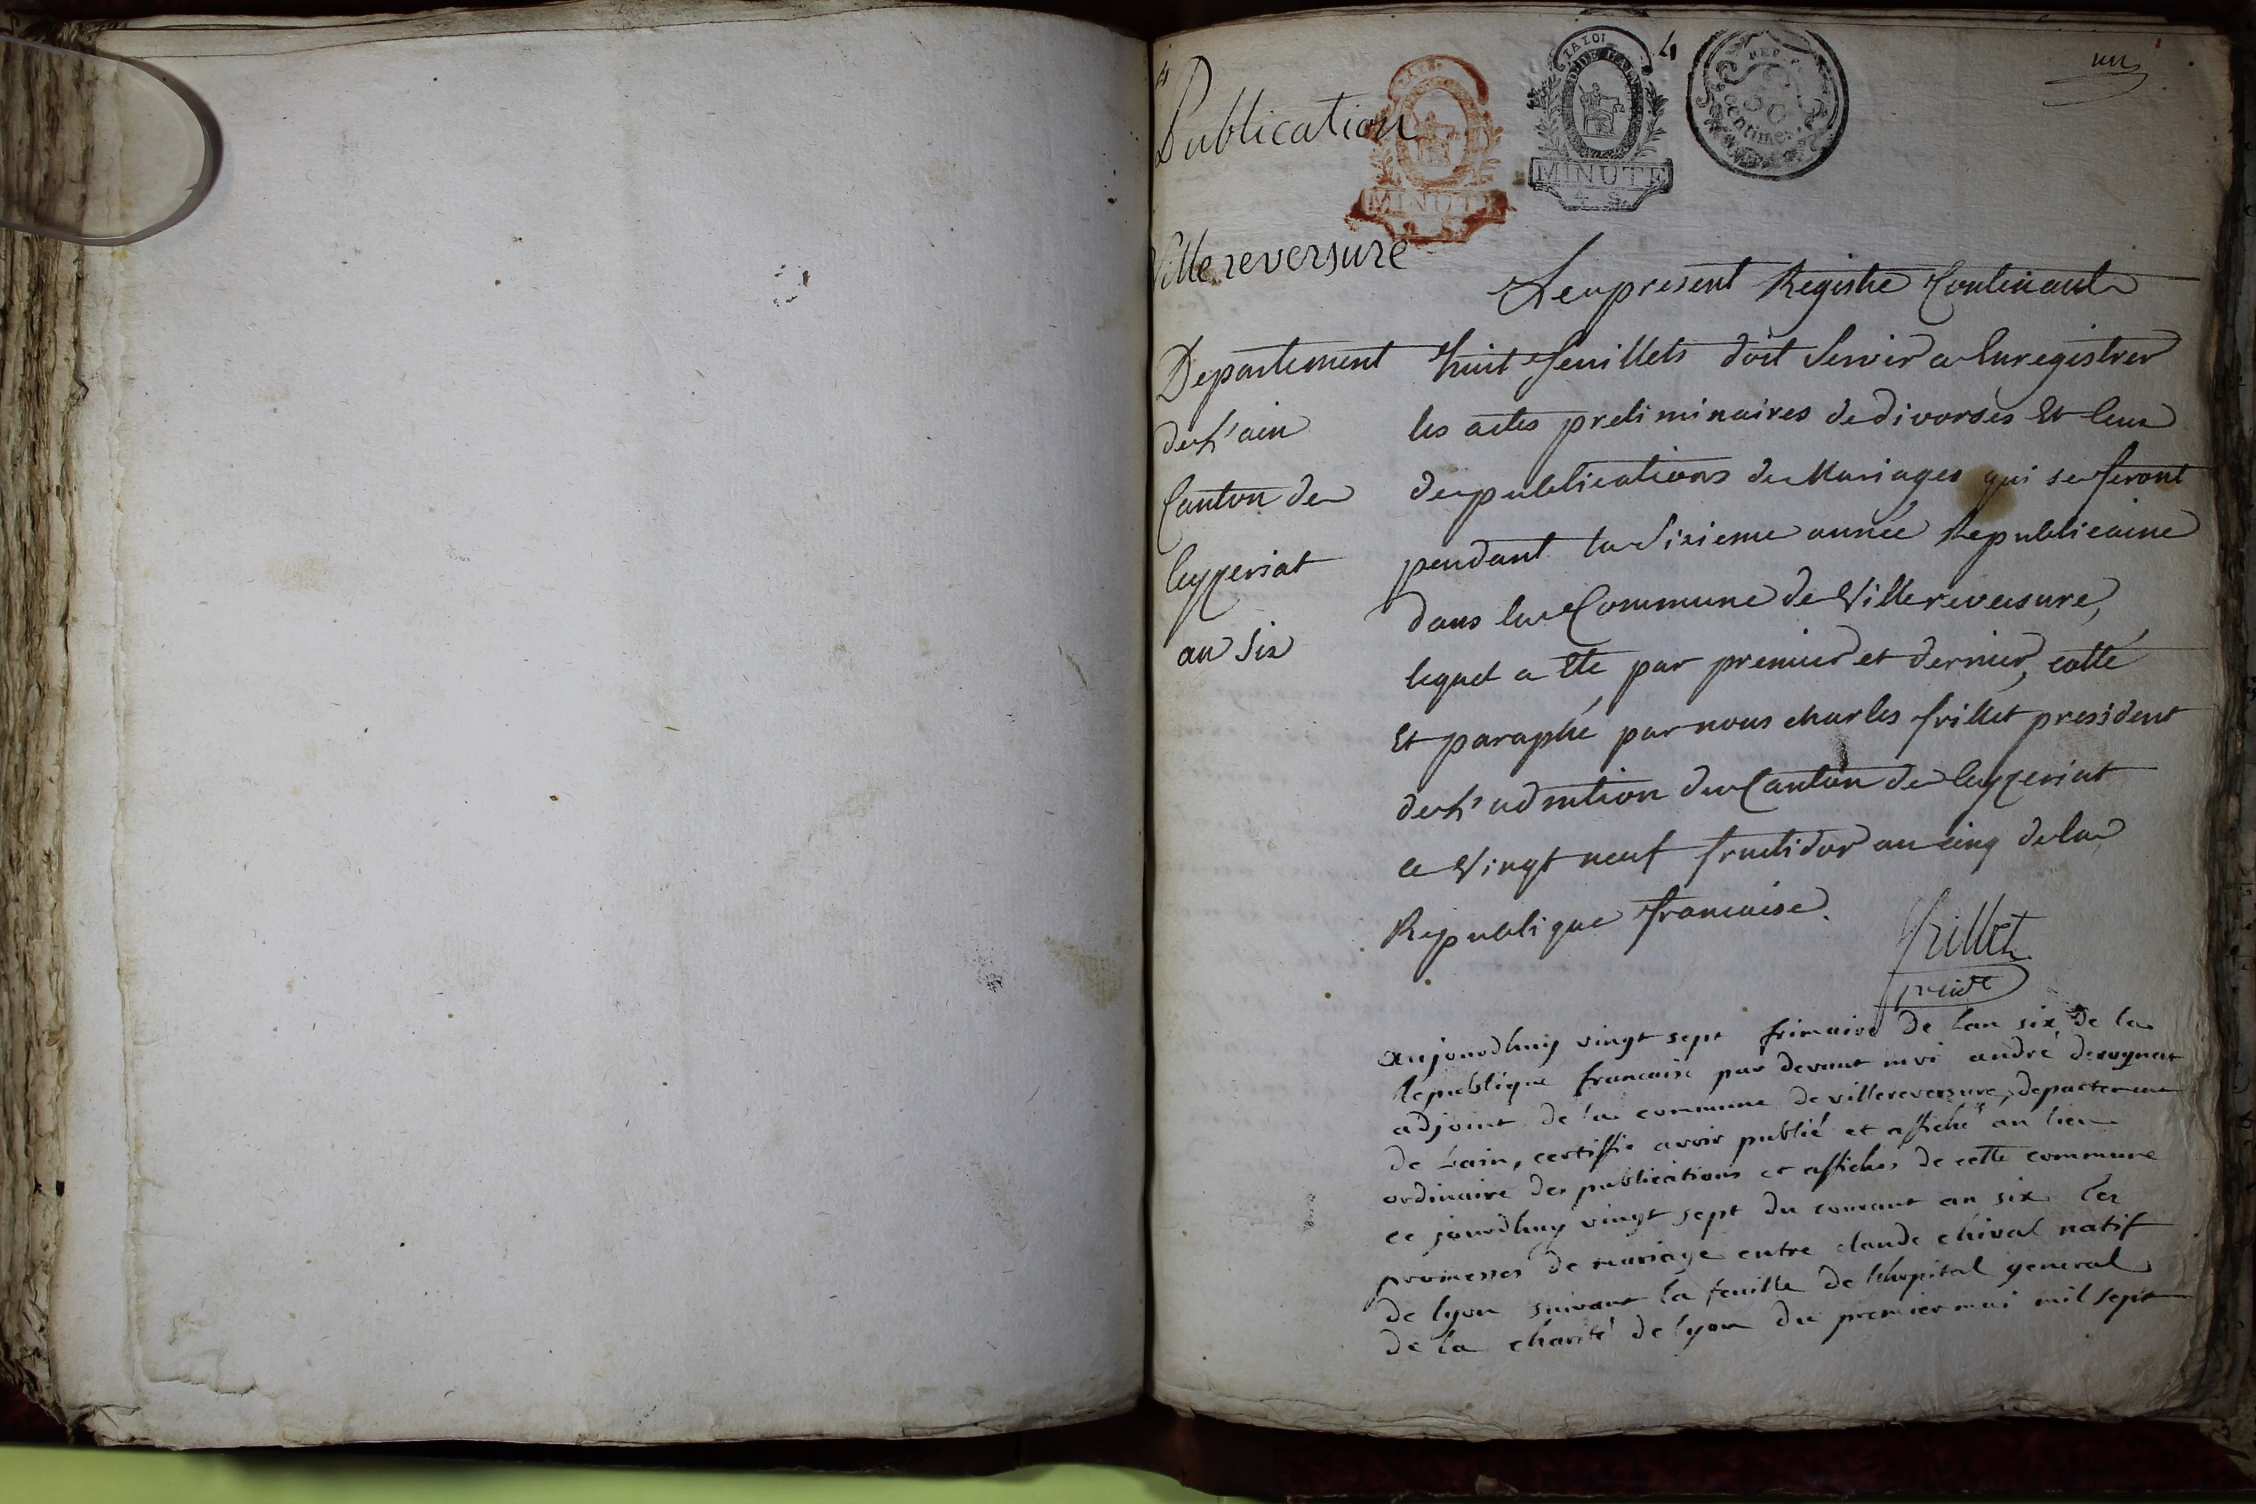 4
un
Publication
LA LOI
MINUTE
4. S.
MINUTE
centimes
Villereversure
Le present Registre Contenant
Departement
huit feuillets doit Servir a Enregistrer
de L'ain
les actes preliminaires de divorses Et Ceux
Canton de
de publications de Mariages qui se feront
Ceyzeriat
pendant la Sixieme année Republicaine
dans la Commune de Villereversure,
an Six
lequel a Eté par premier et dernier, cotté
Et paraphé par nous charles frillet president
de L'admtion du Canton de Ceyzeriat
ce Vingt neuf fructidor an cinq de la
Republique francaise.
frillet
presidt
aujourdhuy vingt sept frimaire de lan six de la
Republique francaise par devant moi andré deroynat
adjoint de la commune de villereversure, departement
de Lain, certiffie avoir publié et affiché au lieu
ordinaire des publications et affiches de cette commune
ce jourdhuy vingt sept du courant an six les
promesses de mariage entre claude chival natif
de lyon suivant la feuille de lhopital general
de la charité de lyon du premier mai mil sept